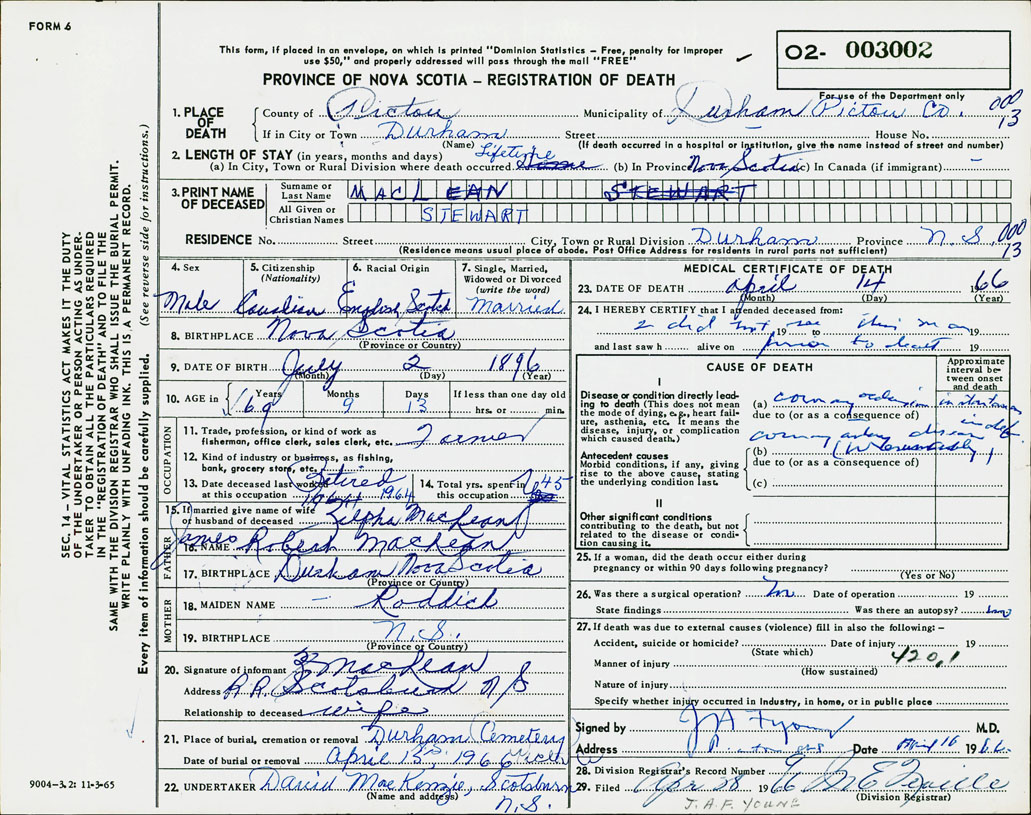 FORM 6
This form, if placed in an envelope, on which is printed "Dominion Statistics – Free, penalty for improper
use $50," and properly addressed will pass through the mail "FREE"
PROVINCE OF NOVA SCOTIA – REGISTRATION OF DEATH
02- 003002
For use of the Department only
000
13
SEC. 14 – VITAL STATISTICS ACT MAKES IT THE DUTY
OF THE UNDERTAKER OR PERSON ACTING AS UNDER-
TAKER TO OBTAIN ALL THE PARTICULARS REQUIRED
IN THE "REGISTRATION OF DEATH" AND TO FILE THE
SAME WITH THE DIVISION REGISTRAR WHO SHALL ISSUE THE BURIAL PERMIT.
WRITE PLAINLY WITH UNFADING INK. THIS IS A PERMANENT RECORD.
Every item of information should be carefully supplied. (See reverse side for instructions.)
1. PLACE OF DEATH
County of Pictou Municipality of Durham Pictou Co.
If in City or Town Durham Street House No.
(Name) (If death occurred in a hospital or institution, give the name instead of street and number)
2. LENGTH OF STAY (in years, months and days) Lifetime
(a) In City, Town or Rural Division where death occurred (b) In Province Nova Scotia (c) In Canada (if immigrant) –
3. PRINT NAME OF DECEASED
Surname or Last Name MACLEAN STEWART
All Given or Christian Names STEWART
RESIDENCE No. Street City, Town or Rural Division Durham Province N.S. 000
13
(Residence means usual place of abode. Post Office Address for residents in rural parts not sufficient)
4. Sex Male
5. Citizenship (Nationality) Canadian
6. Racial Origin English, Scotch
7. Single, Married, Widowed or Divorced (write the word) Married
8. BIRTHPLACE Nova Scotia
(Province or Country)
9. DATE OF BIRTH July 2 1896
(Month) (Day) (Year)
10. AGE in Years Months Days If less than one day old
69 9 13 hrs. or min.
OCCUPATION
11. Trade, profession, or kind of work as
fisherman, office clerk, sales clerk, etc. Farmer
12. Kind of industry or business, as fishing,
bank, grocery store, etc.
13. Date deceased last worked
at this occupation Retired 1964
14. Total yrs. spent in
this occupation 45
15. If married give name of wife
or husband of deceased Zilpha MacLean
FATHER
16. NAME James Robert MacLean
17. BIRTHPLACE Durham Nova Scotia
(Province or Country)
MOTHER
18. MAIDEN NAME – Roddick
19. BIRTHPLACE N.S.
(Province or Country)
20. Signature of informant Z MacLean
Address R.R. Scotsburn N/S
Relationship to deceased wife
21. Place of burial, cremation or removal Durham Cemetery
Date of burial or removal April 1966
22. UNDERTAKER David MacKenzie, Scotsburn
(Name and address) N.S.
MEDICAL CERTIFICATE OF DEATH
23. DATE OF DEATH April 14 1966
(Month) (Day) (Year)
24. I HEREBY CERTIFY that I attended deceased from:
I did not see this man
19 to 19
and last saw h alive on prior to death 19
CAUSE OF DEATH
Approximate interval between onset and death
I
Disease or condition directly lead-
ing to death (This does not mean
the mode of dying, e.g., heart fail-
ure, asthenia, etc. It means the
disease, injury, or complication
which caused death.)
(a) coronary occlusion
due to (or as a consequence of)
Antecedent causes
Morbid conditions, if any, giving
rise to the above cause, stating
the underlying condition last.
(b) coronary artery disease (presumably)
due to (or as a consequence of)
(c)
II
Other significant conditions
contributing to the death, but not
related to the disease or condi-
tion causing it.
25. If a woman, did the death occur either during
pregnancy or within 90 days following pregnancy?
(Yes or No)
26. Was there a surgical operation? no Date of operation 19
State findings Was there an autopsy? no
27. If death was due to external causes (violence) fill in also the following: –
Accident, suicide or homicide? Date of injury 19
(State which)
420.1
Manner of injury
(How sustained)
Nature of injury
Specify whether injury occurred in Industry, in home, or in public place
Signed by M.D.
Address Date 16 1966
28. Division Registrar's Record Number 6
29. Filed Apr 28 1966
(Division Registrar)
J.A.F. YOUNG
9004-3.2: 11-3-65